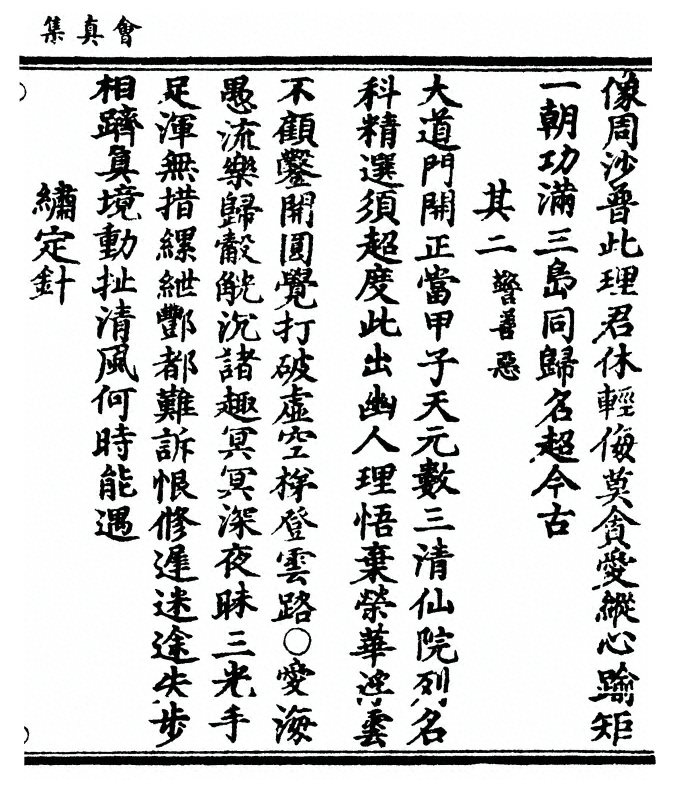 會真集
像周沙普此理君休輕侮莫貪愛縱心踰矩
一朝功滿三島同歸名超今古
其二 警善惡
大道門開正當甲子天元數三清仙院列名
科精選須超度此出幽人理悟棄榮華逆雲
不顧鑿開圓覺打破虛空梯登雲路○愛海
愚流樂歸觳觥沉諸趣冥冥深夜昧三光手
足渾無措縲紲酆都難訴恨修遲迷途失步
相躋真境動扯清風何時能遇
繡定針